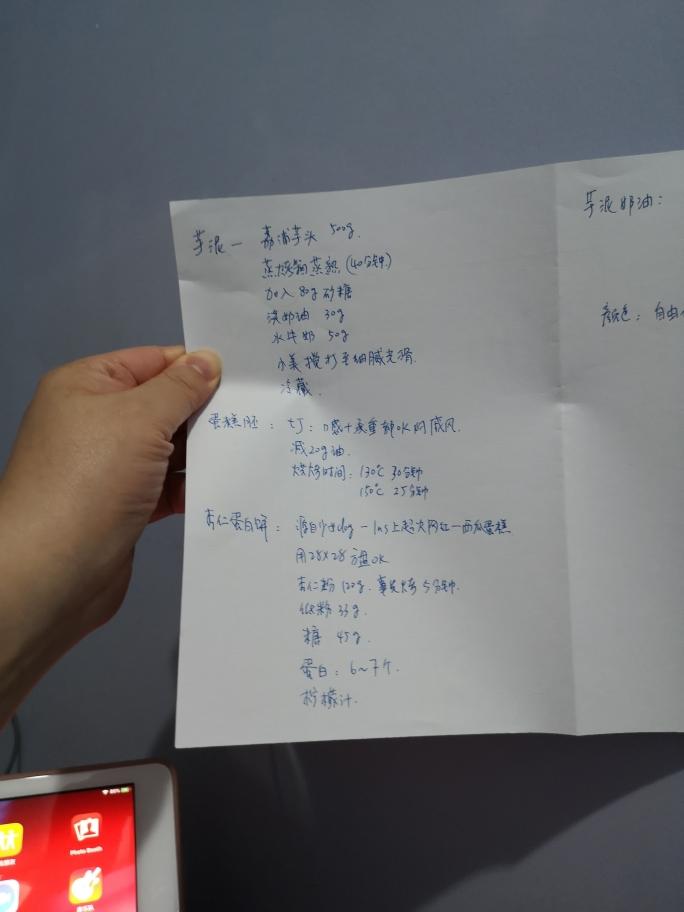 芋泥一 荔浦芋头 500g.
蒸烤箱蒸熟 (40分钟)
加入 80g 砂糖
淡奶油 30g
水牛奶 50g
小美搅打至细腻光滑.
冷藏.
蛋糕胚: 七寸: 口感+承重都OK的戚风.
减20g油.
烘烤时间: 130℃ 30分钟
150℃ 25分钟
杏仁蛋白饼: 源自 blog - Ins上超火网红一西瓜蛋糕
用28×28方盘OK
杏仁粉 120g. 事先烤5分钟.
低粉 33g.
糖 45g.
蛋白: 6~7个.
柠檬汁.
芋泥奶油:
颜色: 自由
Photo Booth